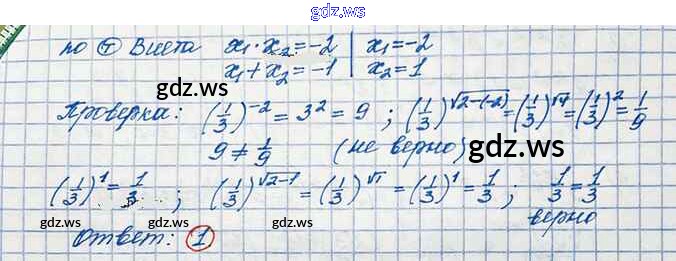 gdz.ws
по Т Виета x₁·x₂=-2 | x₁=-2
x₁+x₂=-1 | x₂=1
gdz.ws gdz.ws
Проверка: (1/3)^-2 = 3² = 9 ; (1/3)^√2-(-2) = (1/3)^√4 = (1/3)² = 1/9
9 ≠ 1/9 (не верно)
gdz.ws
(1/3)¹ = 1/3 ; (1/3)^√2-1 = (1/3)^√1 = (1/3)¹ = 1/3 ; 1/3 = 1/3
gdz.ws gdz.ws
верно
Ответ: 1
gdz.ws